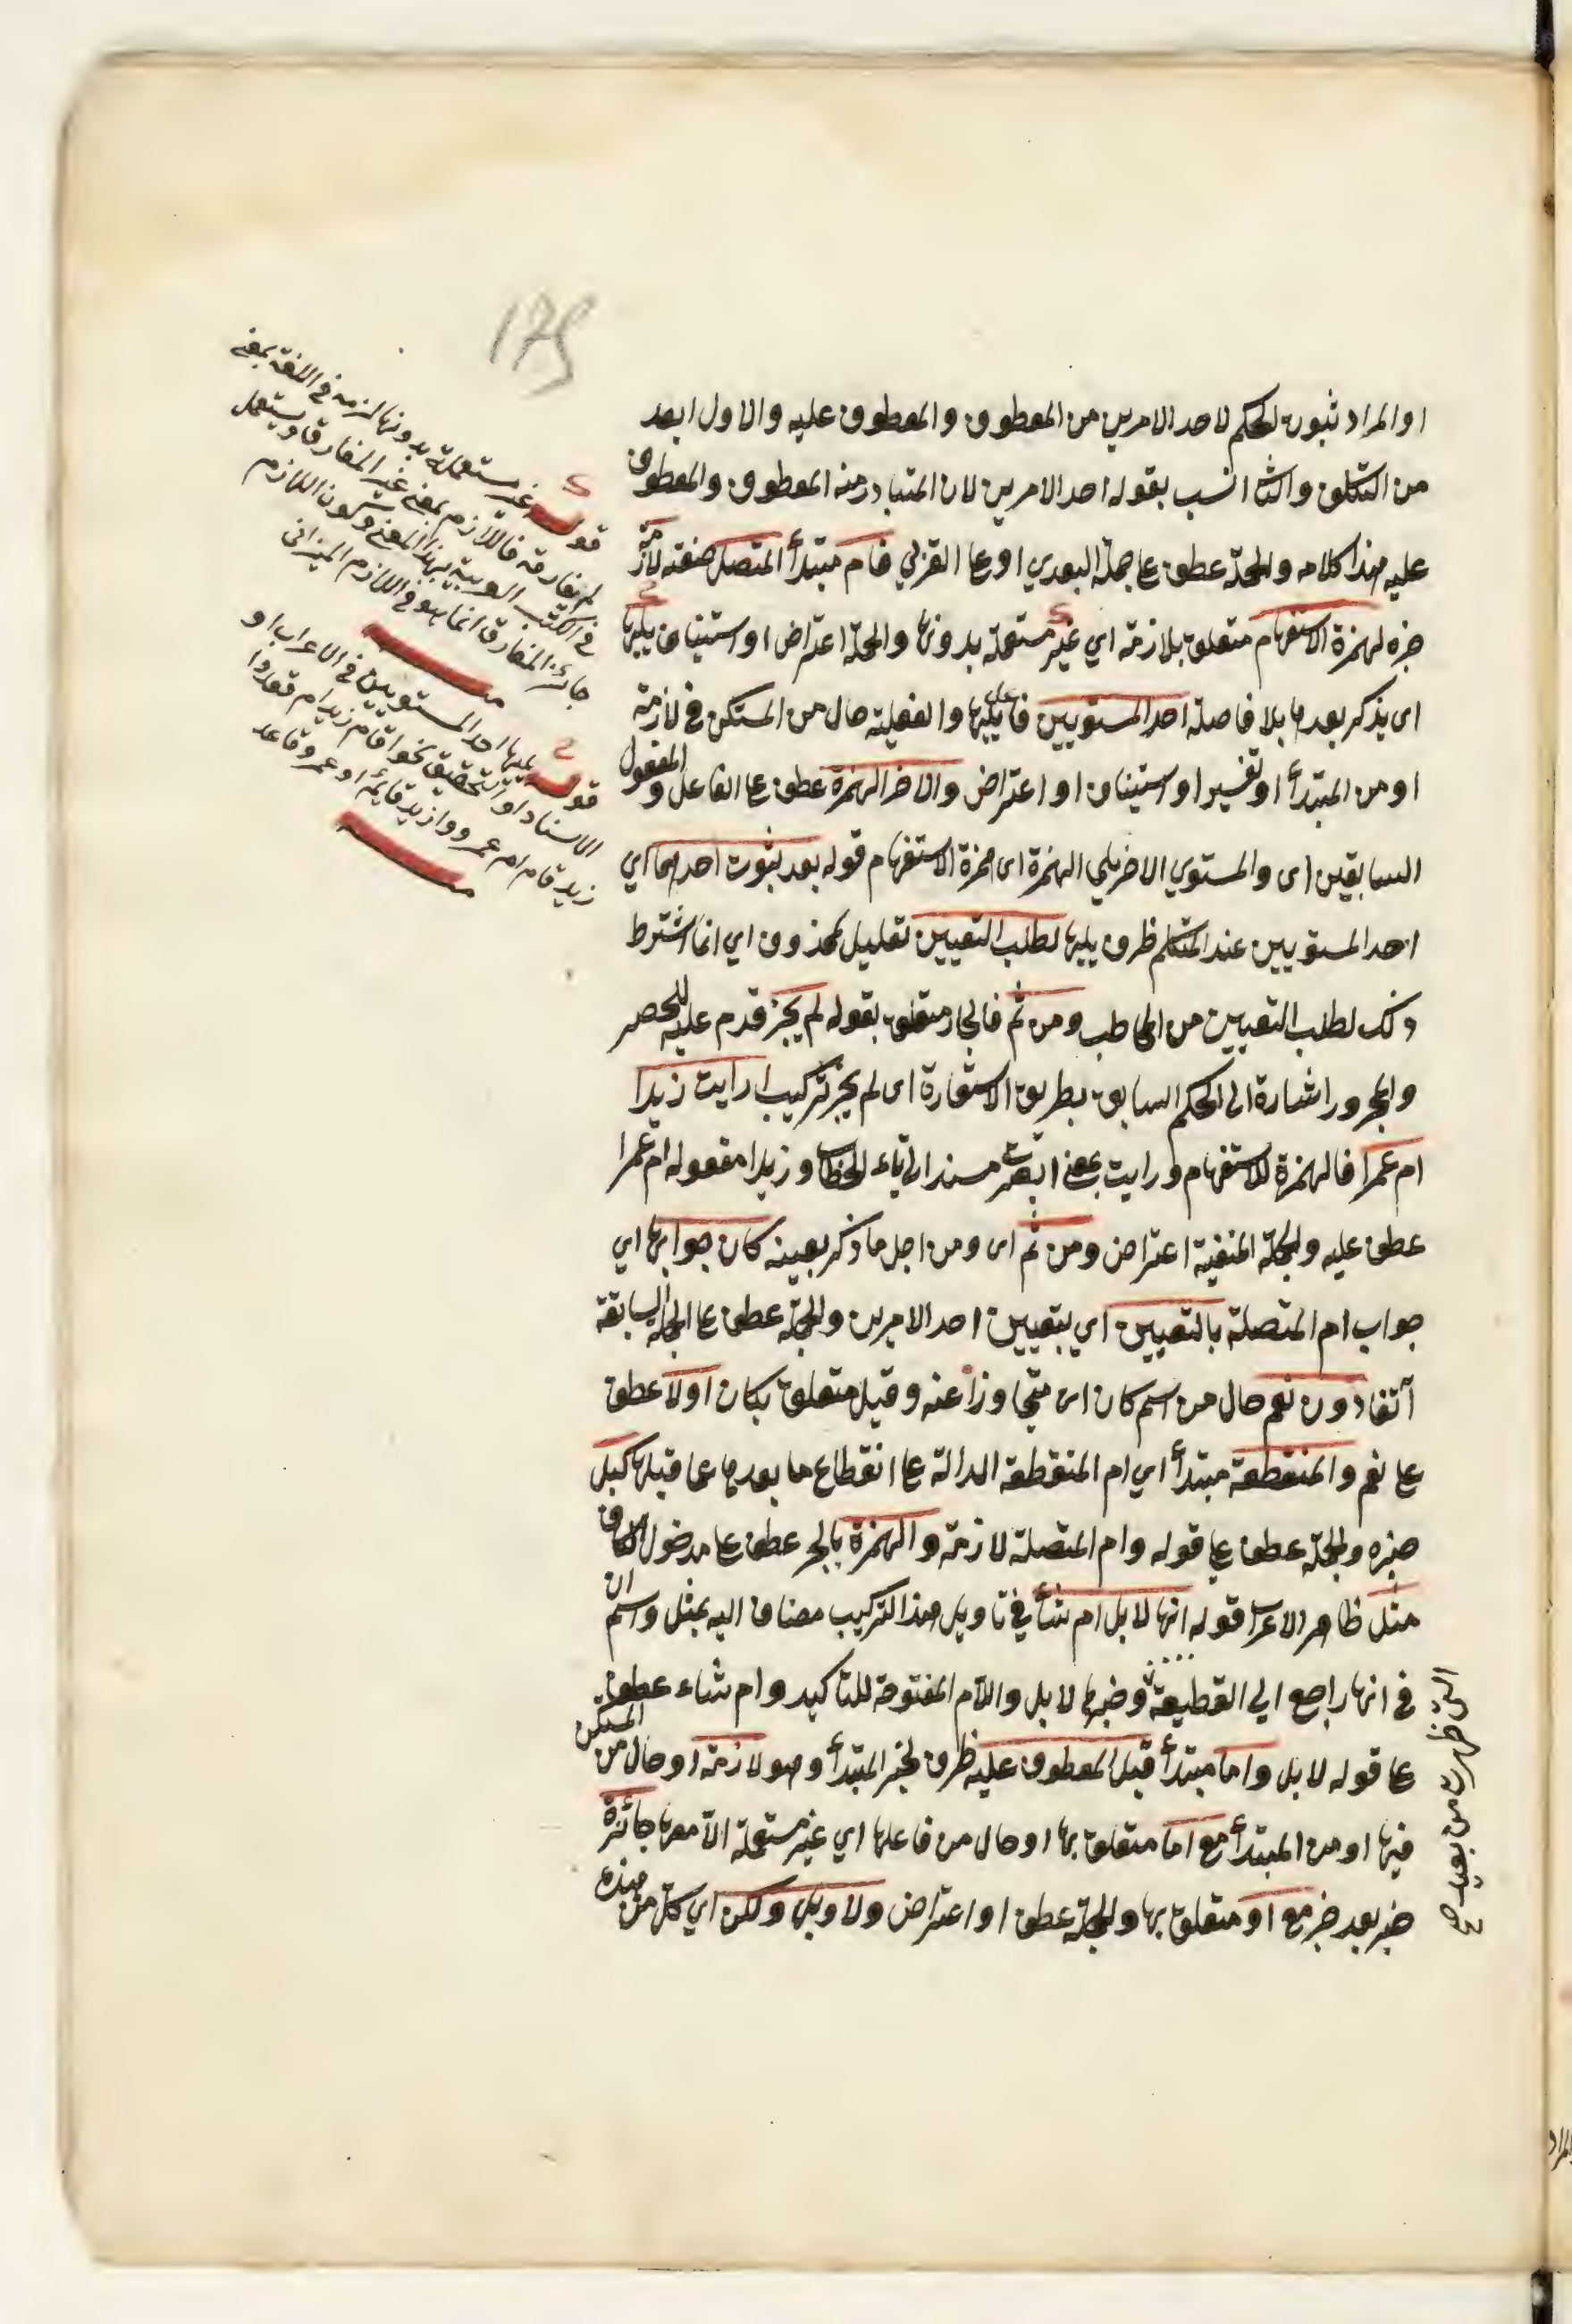 او المراد ثبوت الحكم لاحد الامرين من المعطوف والمعطوف عليه والاول ابعد
من التكلف والثا انسب بقوله احد الامرين لان المتبادر منه المعطوف والمعطوف
عليه هذا كلامه والجملة عطف عا جملة البعدي او عا القربي فام مبتدأ المتصلة صفته لازمة
خبره لهمزة الاستفهام متعلق بلازمة اي غير مستعملة بدونها والجملة اعتراض او استيناف يليها
اى يذكر بعدها بلا فاصلة احد المستويين فاعل يليها والفعلية حال من المستكن في لازمة
او من المبتدأ او تفسير او استيناف او اعتراض والاخر الهمزة عطف عا الفاعل والمفعول
السابقين اى والمستوي الاخر يلي الهمزة اى همزة الاستفهام قوله بعد ثبوت احدهما اي
احد المستويين عند المتكلم ظرف يليها لطلب التعيين تعليل لمحذوف اي انما اشترط
ذلك لطلب التعيين من المخاطب ومن ثم فالجار متعلق بقوله لم يجز قدم عليه للحصر
والمجرور اشارة الى الحكم السابق بطريق الاستعارة اى لم يجز تركيب ارايت زيدا
ام عمرا فالهمزة للاستفهام ورايت بمعنى ابصرت مسند الى تاء الخطاب وزيدا مفعوله ام عمرا
عطف عليه والجملة المنفية اعتراض ومن ثم اى ومن اجل ما ذكر بعينه كان جوابها اي
جواب ام المتصلة بالتعيين اي بتعيين احد الامرين والجملة عطف عا الجملة السابقة
آنفا دون نعم حال من اسم كان اى متجاوزا عنه وقيل متعلق بكان اولا عطف
عا نعم والمنقطعة مبتدأ اي ام المنقطعة الدالة عا انقطاع ما بعدها عما قبلها كبل
خبره والجملة عطف عا قوله وام المتصلة لازمة والهمزة بالجر عطف عا مدخول الكاف
مثل ظاهر الاعراب قوله انها لابل ام شاء في تاويل هذا التركيب مضاف اليه بمثل واسم ان
في انها راجع الي القطيعة وخبرها لابل واللام المفتوحة للتاكيد وام شاء عطف
عا قوله لابل واما مبتدأ قبل المعطوف عليه ظرف لخبر المبتدأ وهو لازمة او حال من المستكن
فيها او من المبتدأ مع اما متعلق بها او حال من فاعلها اي غير مستعملة الا معها جائزة
خبر بعد خبر مع او متعلق بها والجملة عطف او اعتراض ولا وبل ولكن اي كل من هذه
التى ظهرت من بعيد صح
قوله غير مستعملة بدونها لزمه في اللغة بمعنى
لم يفارقه فاللازم بمعنى غير المفارق ويستعمل
في الكتب العربية بهذا المعنى وكون اللازم
جائز المفارق انما هو في اللازم الميزانى
منه
قوله يليها احد المستويين في الاعراب او
الاسناد او التحقيق نحو اقام زيد ام قعد وا
زيد قام ام عمرو وازيد قائم او عمرو قاعد
منه